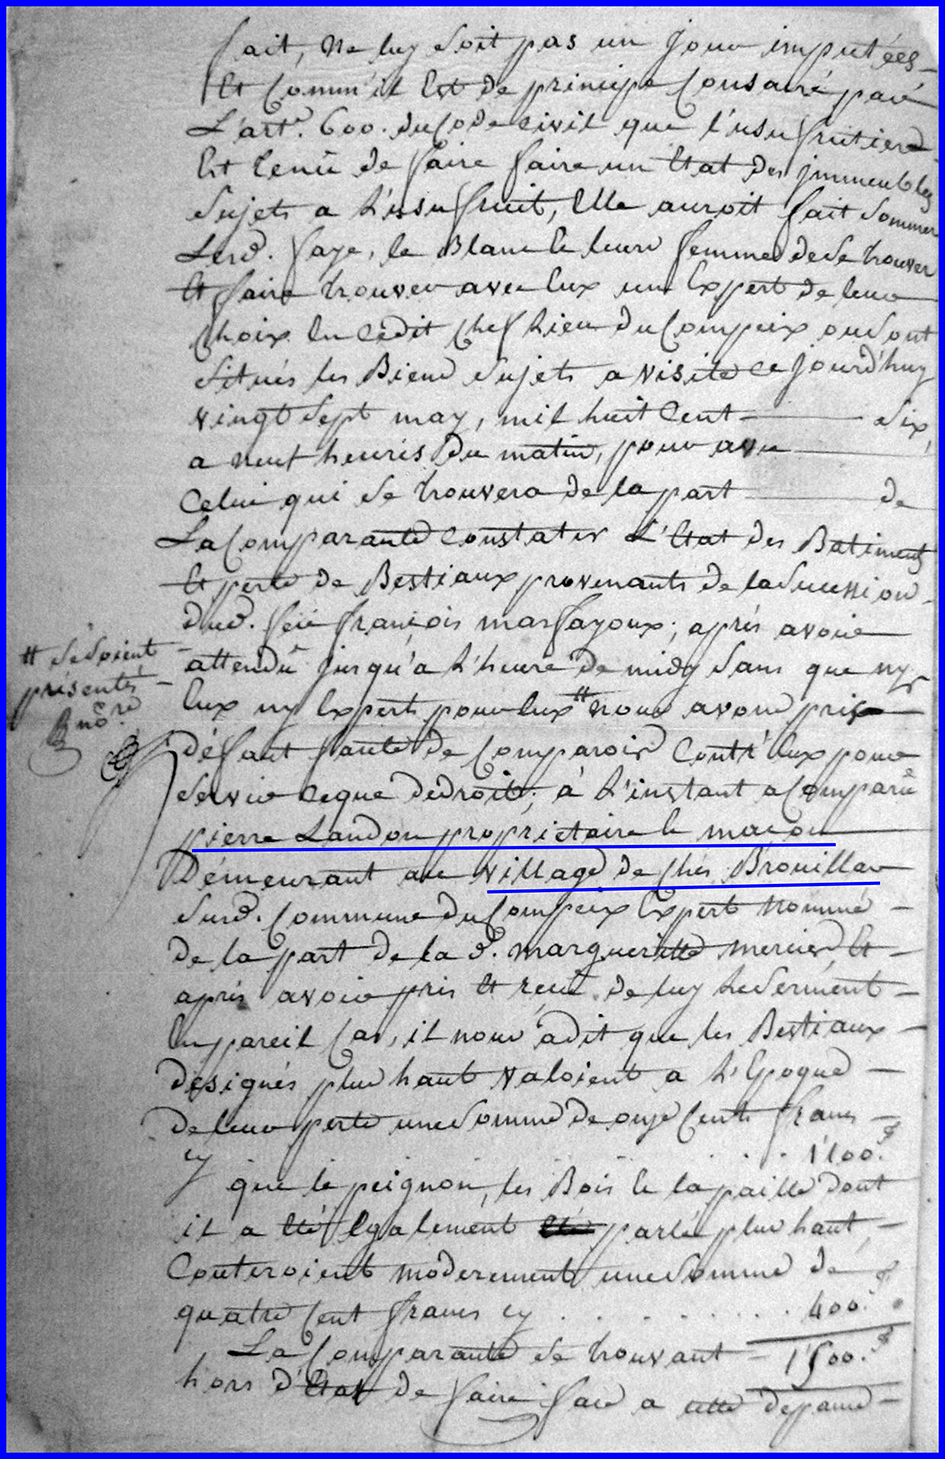 fait, ne luy soit pas un jour imputées
Et Comm'il Est de principe Consacré par
L'art.e 600. du Code civil que l'usufruitier
Est tenu de faire faire un Etat des immeubles
sujets a L'usufruit, Elle auroit fait sommer
Lesd. faye, le Blanc & leurs femmes de se trouver
Et faire trouver avec Eux un Expert de leur
Choix En cedit Chef Lieu du Compeix ou sont
situés les Biens sujets a visite ce jourd'huy
vingt sept may, mil huit Cent six,
a neuf heures du matin, pour avec
Celui qui se trouvera de la part de
La Comparante Constater L'Etat des Batiments
Et perte de Bestiaux provenants de la sucession
dud. feü françois marsfayoux; aprés avoir
attendu jusqu'a L'heure de midy sans que ny
Eux ny Expert pour Eux # nous avons pris
# se soient
présentés
défaut faute de Comparoir Contr'Eux pour
servir ce que de droit; à L'instant a Comparu
pierre Landon propriétaire & maçon
Demeurant au village de Chés Brouillau
susd. Commune du Compeix Expert Nommé
de la part de la d. margueritte mercier, Et
aprés avoir pris Et reçu de luy Le serment
En pareil Cas, il nous a dit que les Bestiaux
désignés plus haut valoient a L'Epoque
de leur perte une somme de onze Cents francs
cy . . . . 1100.f
que le peignon, les Bois & la paille dont
il a été Egalement parlé plus haut,
Couteroient moderement une somme de
quatre Cent francs cy . . . . . . . 400.f
La Comparante se trouvant 1500.f
hors d'Etat de faire face a cette depance